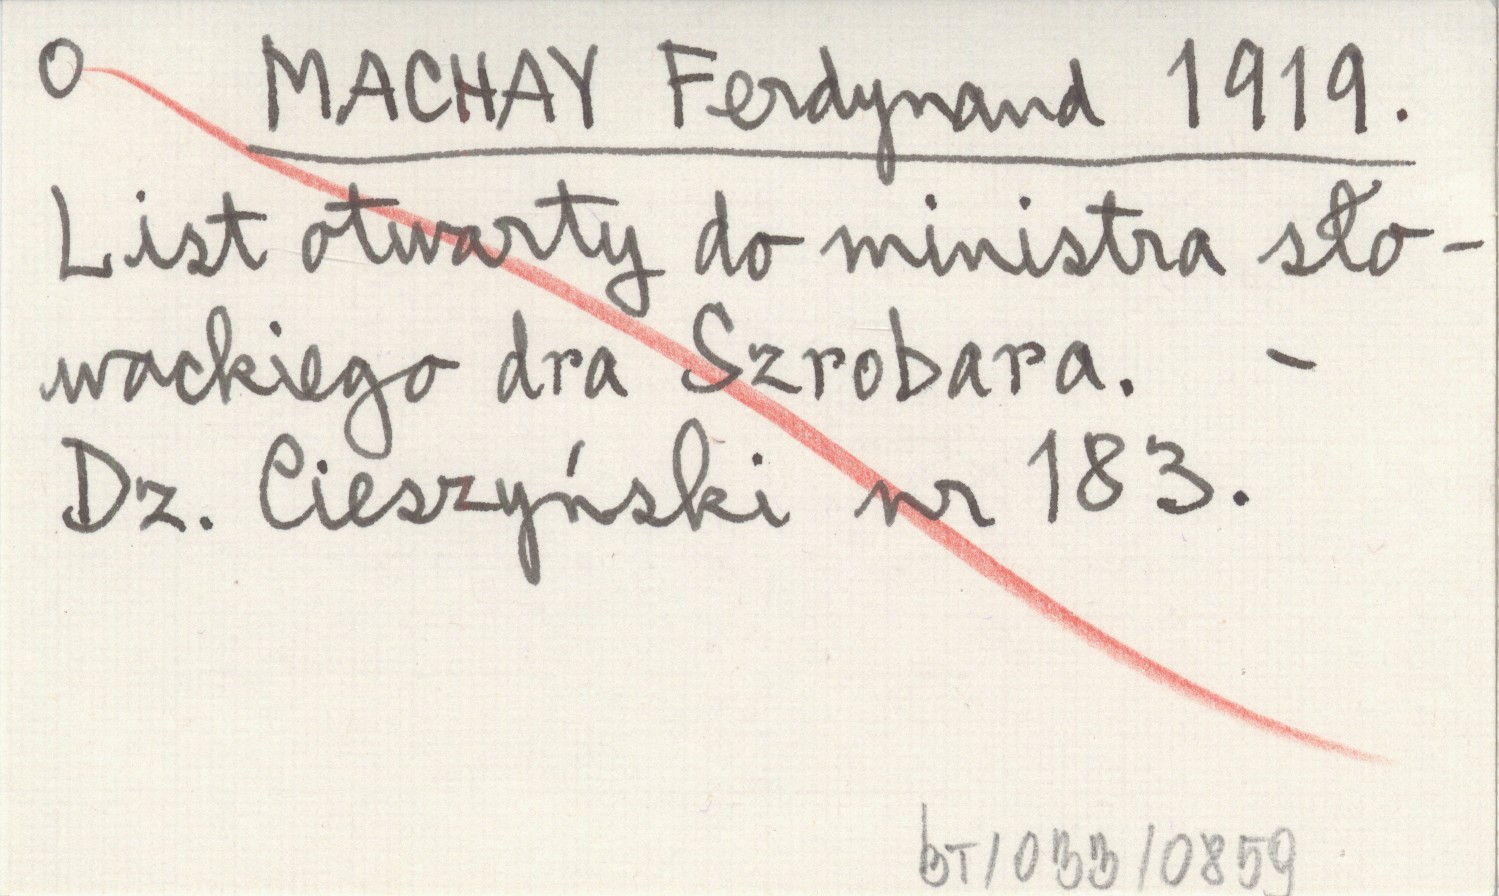 O MACHAY Ferdynand 1919.
List otwarty do ministra sło-
wackiego dra Szrobara. -
Dz. Cieszyński nr 183.
BT/033/0859